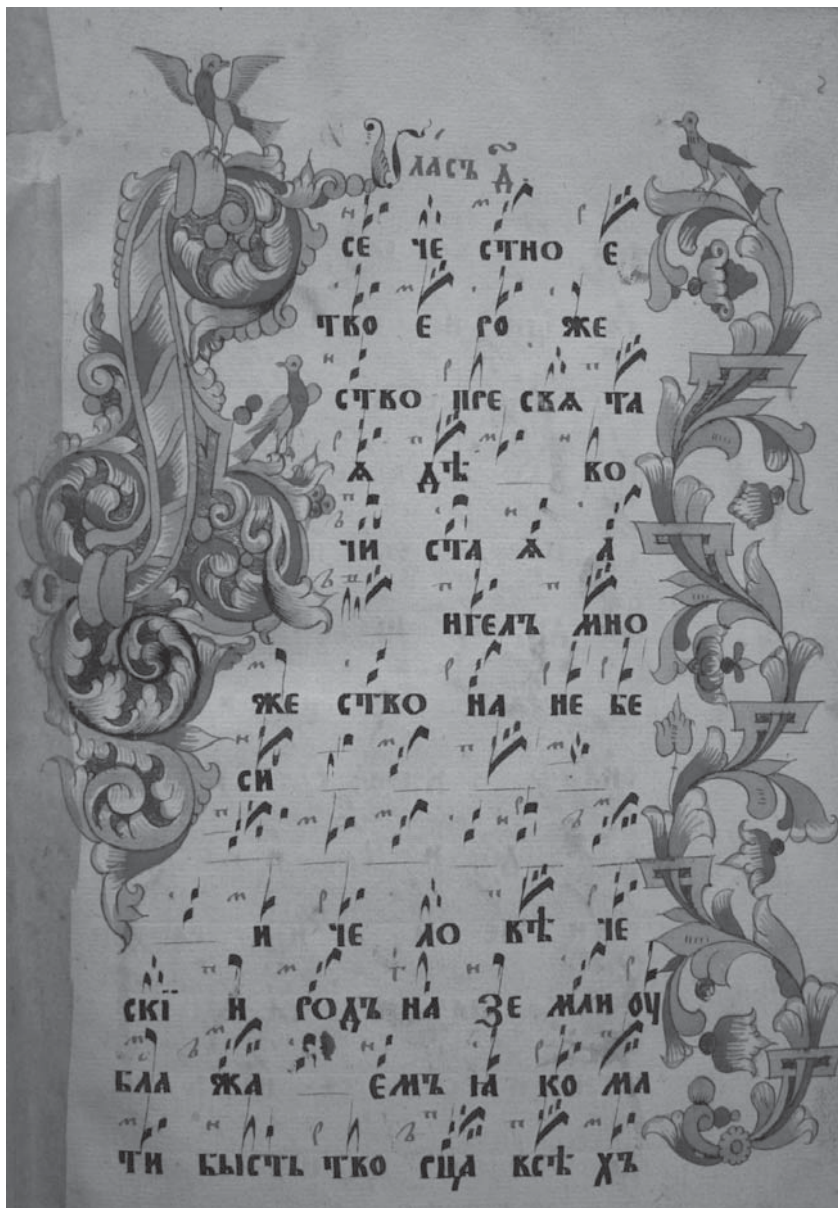 Гласъ д҃.
В се че стно е
тво е го же
ство пре свѧ та
ѧ дѣ во
чи ста ѧ а
нгелъ мно
же ство на не бе
си
и че ло вѣ че
скїи и родъ на зе мли оу
бла жа емъ ꙗ ко ма
ти бысть тво рца всѣ хъ